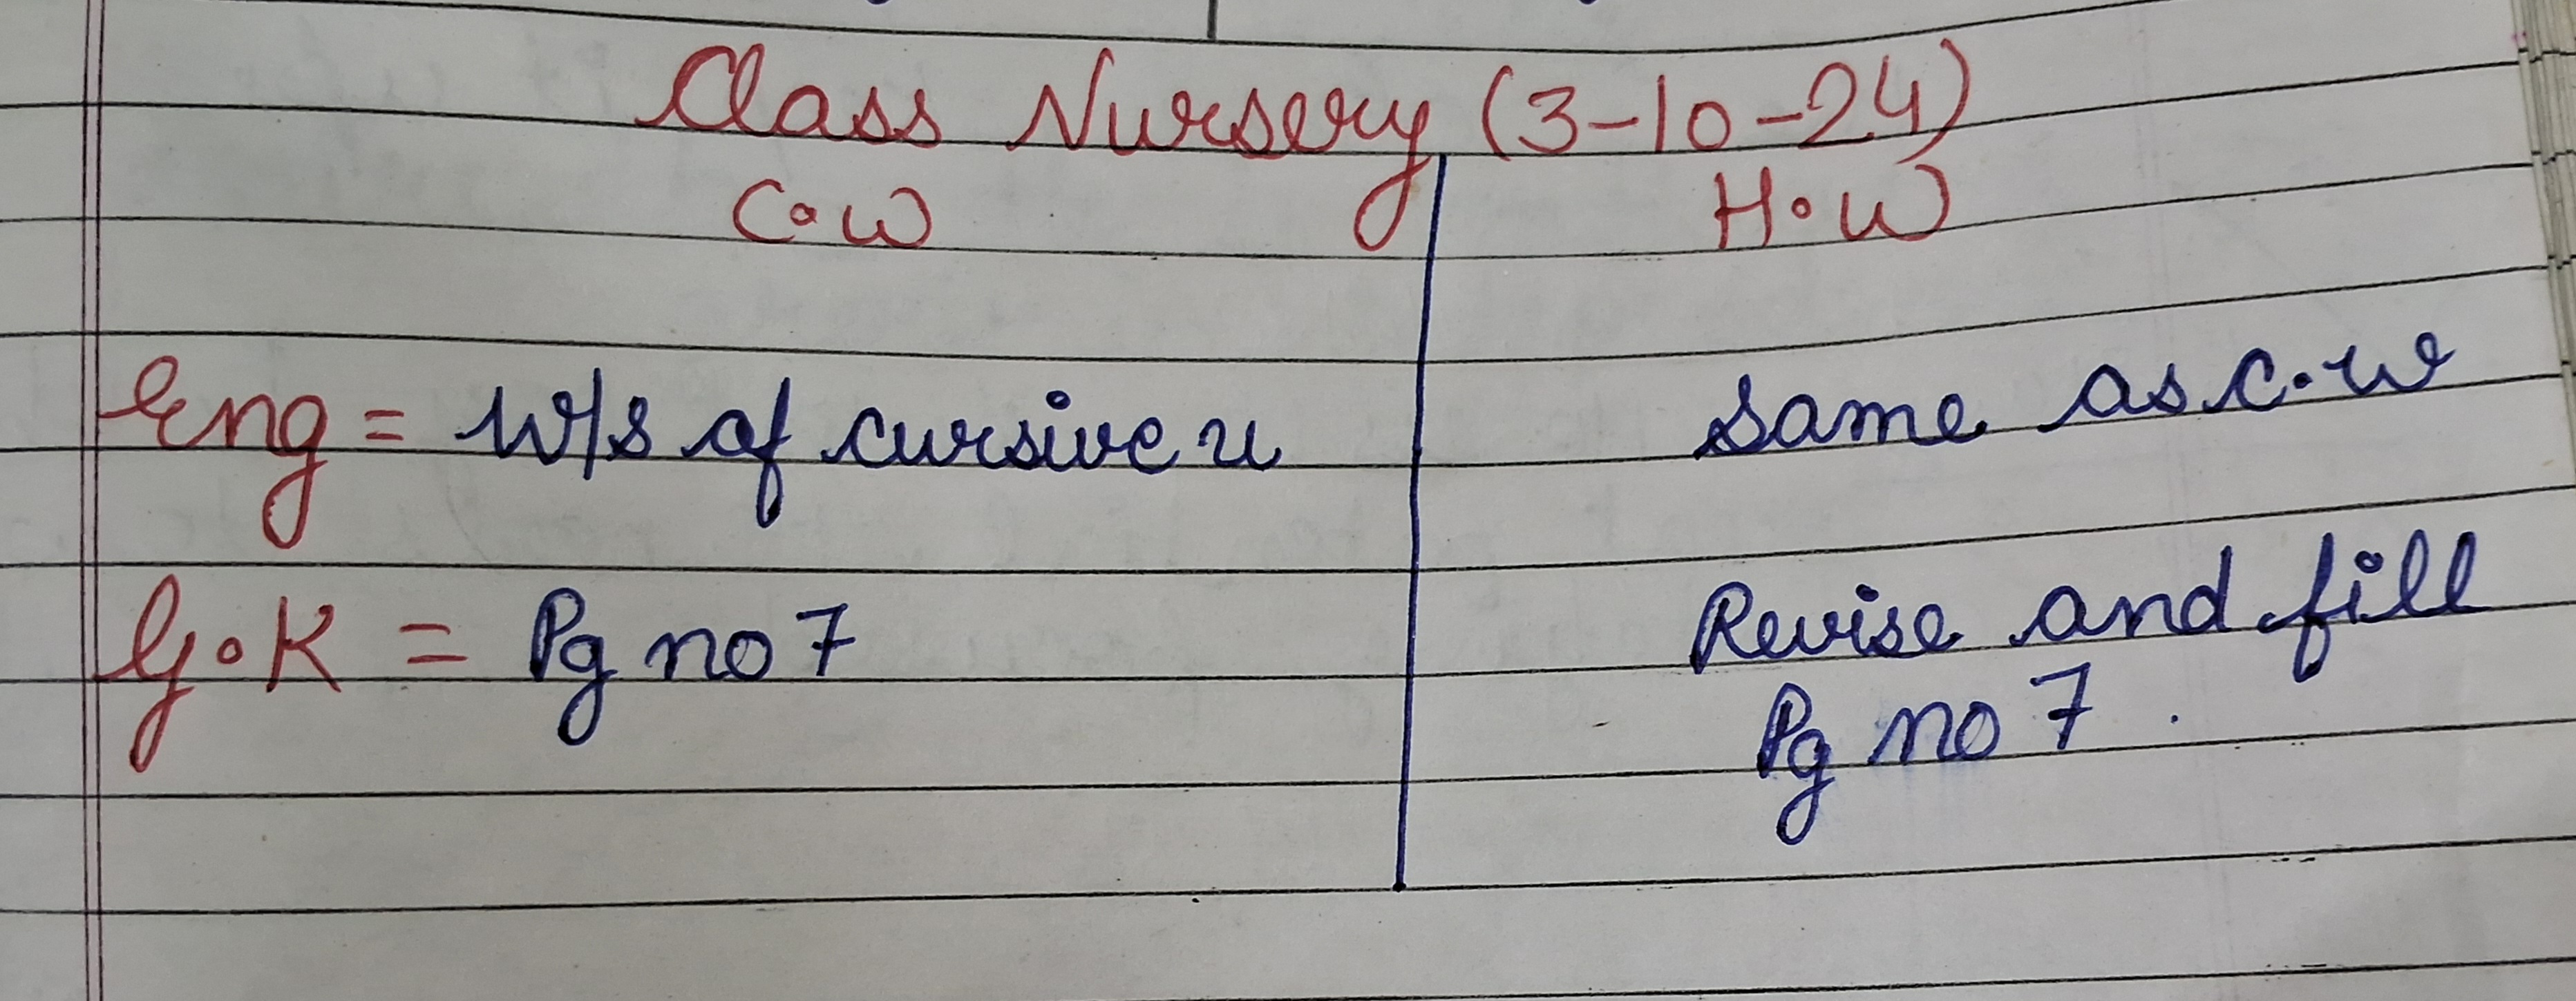 Class Nursery (3-10-24)
C.W H.W
Eng = W/s of cursive u same as c.w
G.K = Pg no 7 Revise and fill
Pg no 7.